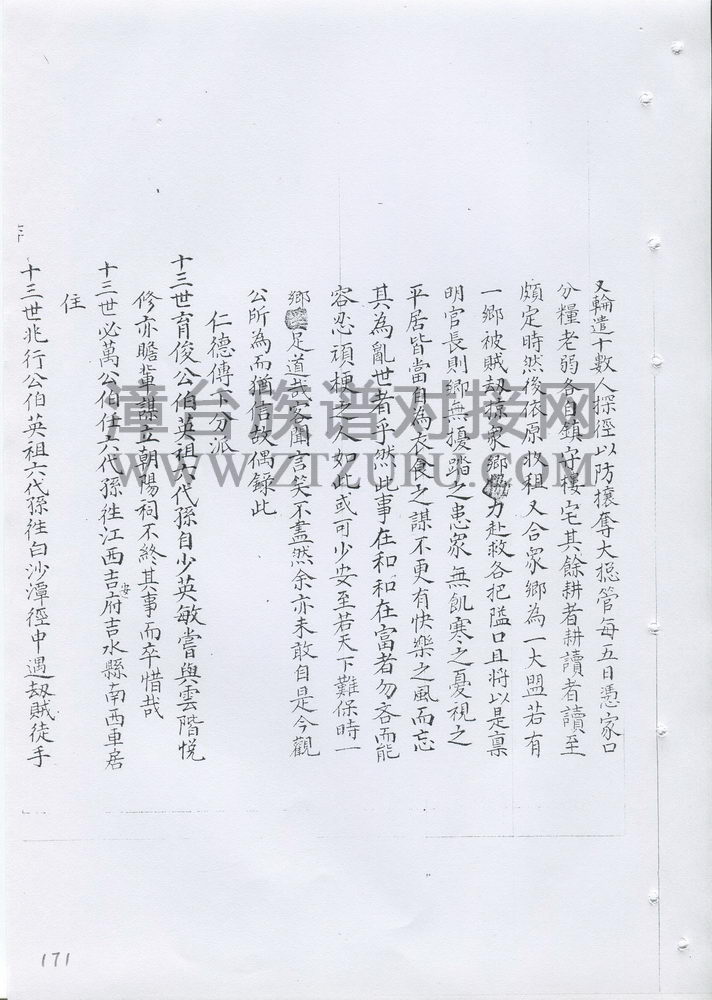 又輪遣十數人探徑以防攘奪大總管每五日憑家口
分糧老弱各自鎮守樓宅其餘耕者耕讀者讀至
頗定時然後依原收租又合眾鄉為一大盟若有
一鄉被賊刼掠眾鄉力赴救各把隘口且將以是稟
明官長則鄉無擾踏之患家無飢寒之憂視之
平居皆當自為衣食之謀不更有快樂之風而忘
其為亂世者乎然此事在和和在富者勿吝而能
容忍頑梗之人如此或可少安至若天下難保時一
鄉足道哉客聞言笑不盡然余亦未敢自是今觀
公所為而猶信故偶錄此
仁德傳下分派
十三世育俊公伯英祖六代孫自少英敏嘗與雲階悅
修亦瞻輩謀立朝陽祠不終其事而卒惜哉
十三世必萬公伯任六代孫徃江西吉安府吉水縣南西車居
住
十三世兆行公伯英祖六代孫徃白沙潭徑中遇刼賊徒手
171
潭台族谱对接网
WWW.ZTZUPU.COM